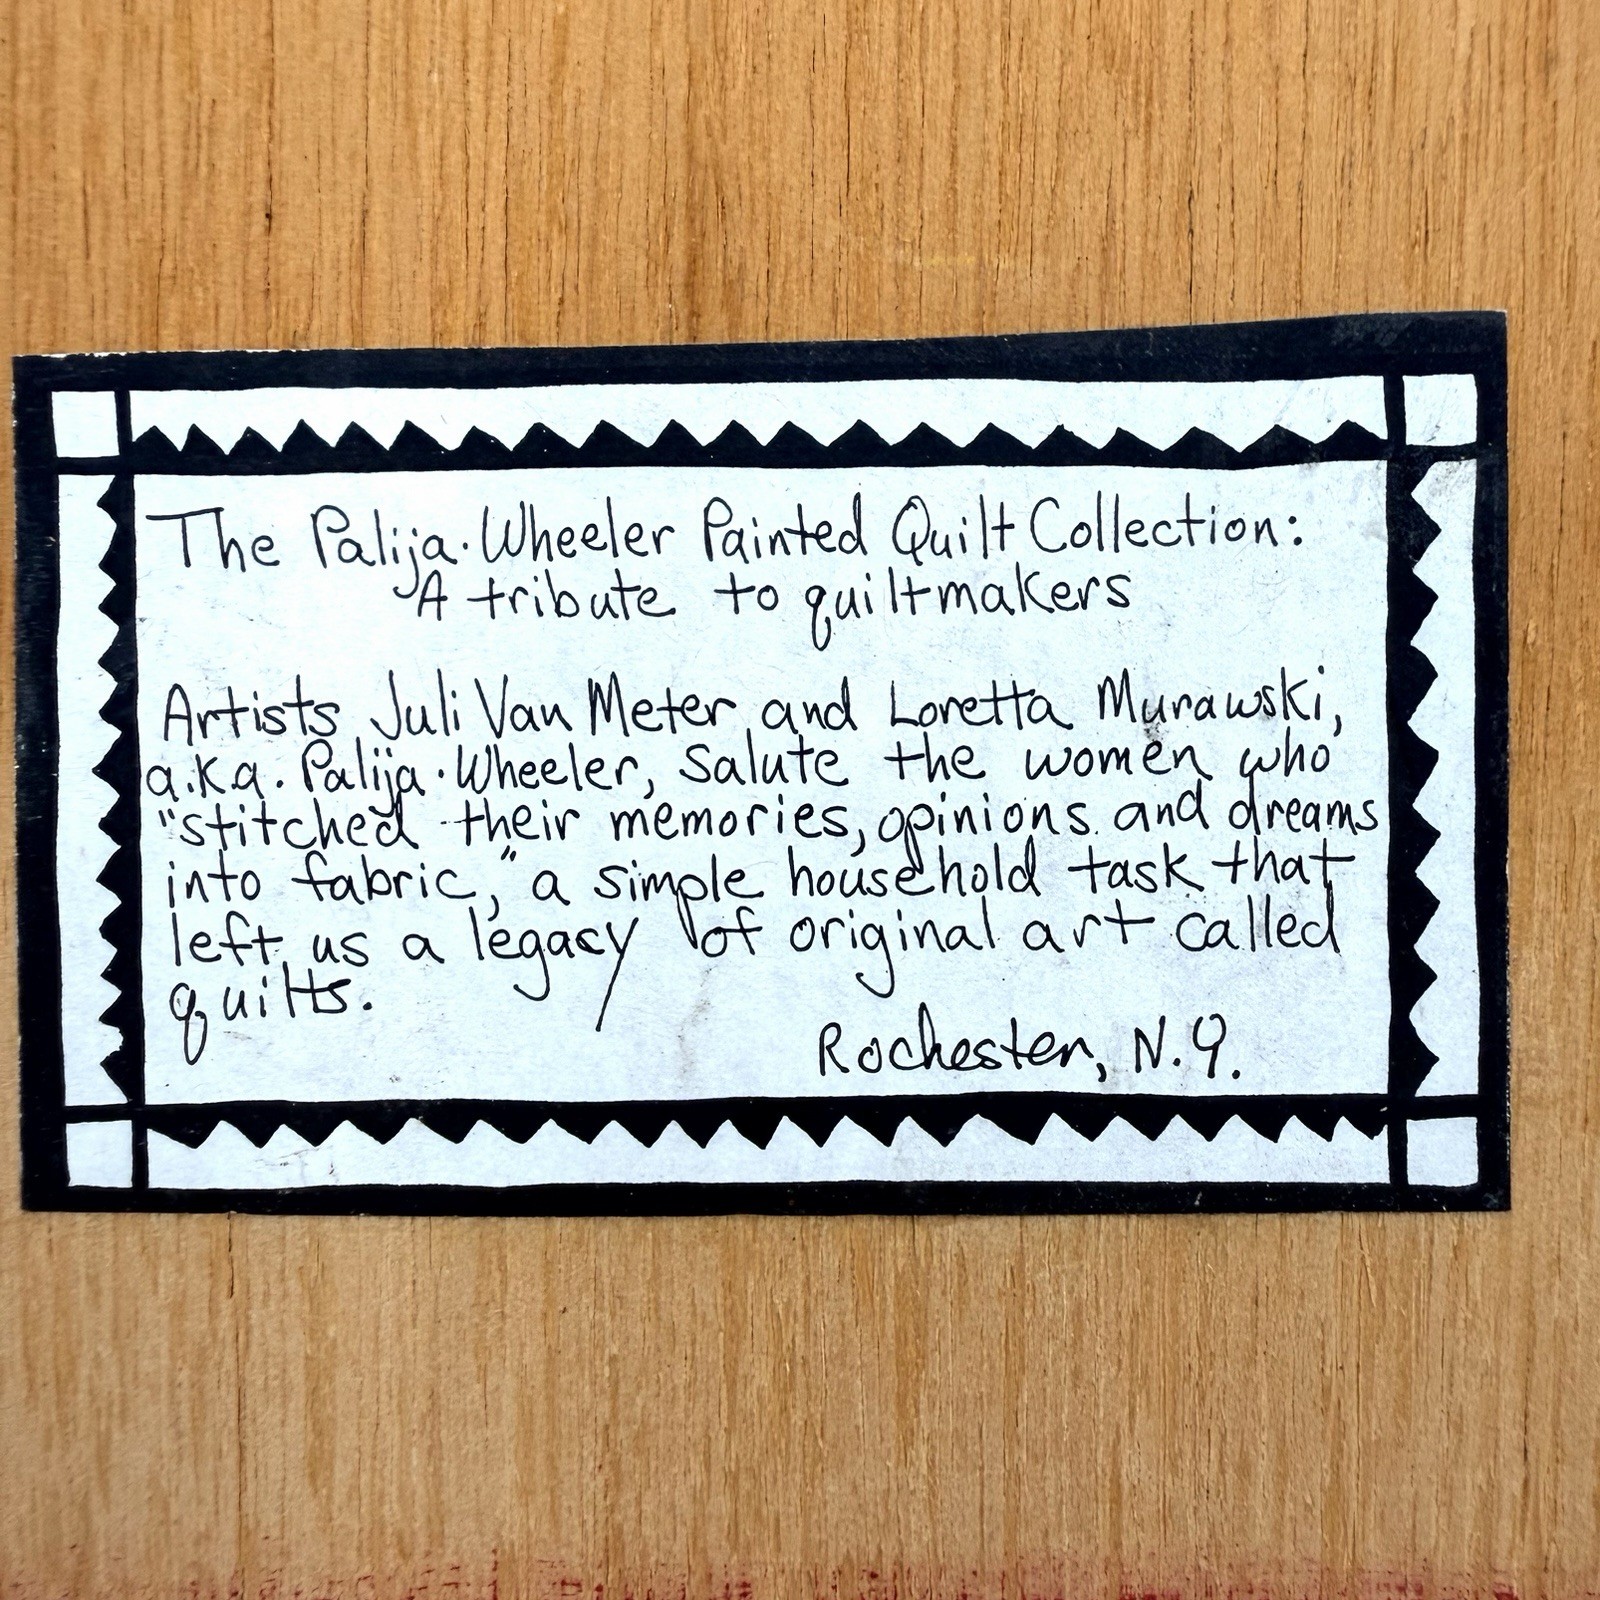 The Palija·Wheeler Painted Quilt Collection:
A tribute to quiltmakers
Artists Juli Van Meter and Loretta Murawski,
a.k.a. Palija·Wheeler, salute the women who
"stitched their memories, opinions and dreams
into fabric," a simple household task that
left us a legacy of original art called
quilts.
Rochester, N.Y.